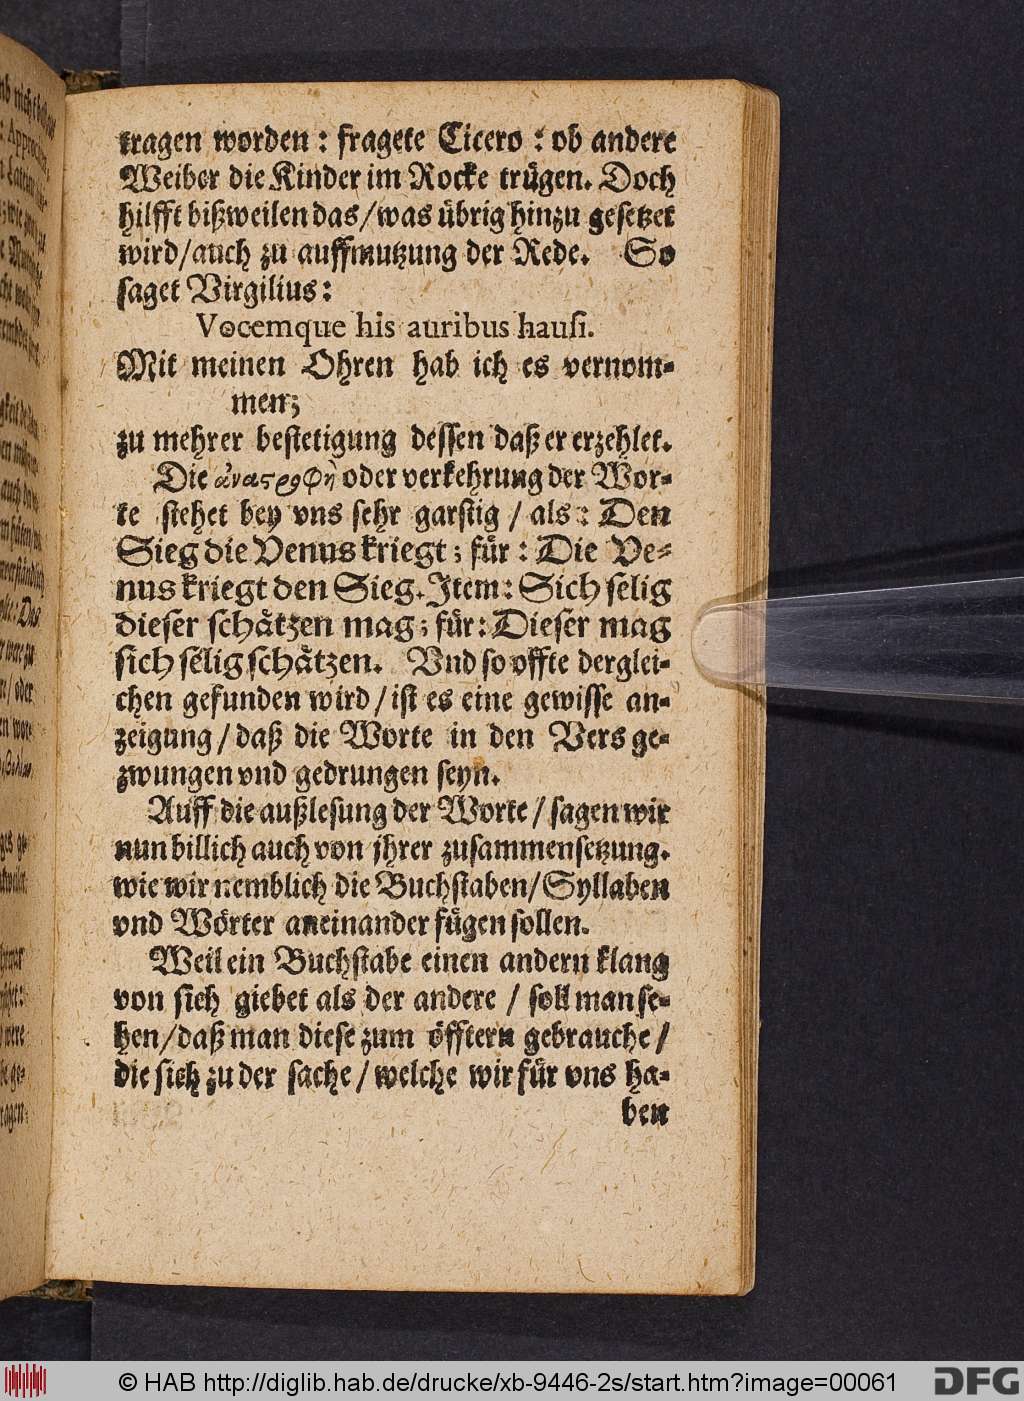 tragen worden : fragete Cicero : ob andere
Weiber die Kinder im Rocke trügen. Doch
hilfft bißweilen das / was übrig hinzu gesetzet
wird / auch zu auffmutzung der Rede. So
saget Virgilius :
Vocemque his auribus hausi.
Mit meinen Ohren hab ich es vernom-
men;
zu mehrer bestetigung dessen daß er erzehlet.
Die ἀναςροφὴ oder verkehrung der Wor-
te stehet bey vns sehr garstig / als : Den
Sieg die Venus kriegt ; für : Die Ve-
nus kriegt den Sieg. Item : Sich selig
dieser schätzen mag ; für : Dieser mag
sich sélig schätzen. Vnd so offte derglei-
chen gefunden wird / ist es eine gewisse an-
zeigung / daß die Worte in den Vers ge-
zwungen vnd gedrungen seyn.
Auff die außlesung der Worte / sagen wir
nun billich auch von jhrer zusammensetzung.
wie wir nemblich die Buchstaben / Syllaben
vnd Wörter aneinander fügen sollen.
Weil ein Buchstabe einen andern klang
von sich giebet als der andere / soll man se-
hen / daß man diese zum öfftern gebrauche /
die sich zu der sache / welche wir für vns ha-
ben
© HAB http://diglib.hab.de/drucke/xb-9446-2s/start.htm?image=00061
DFG